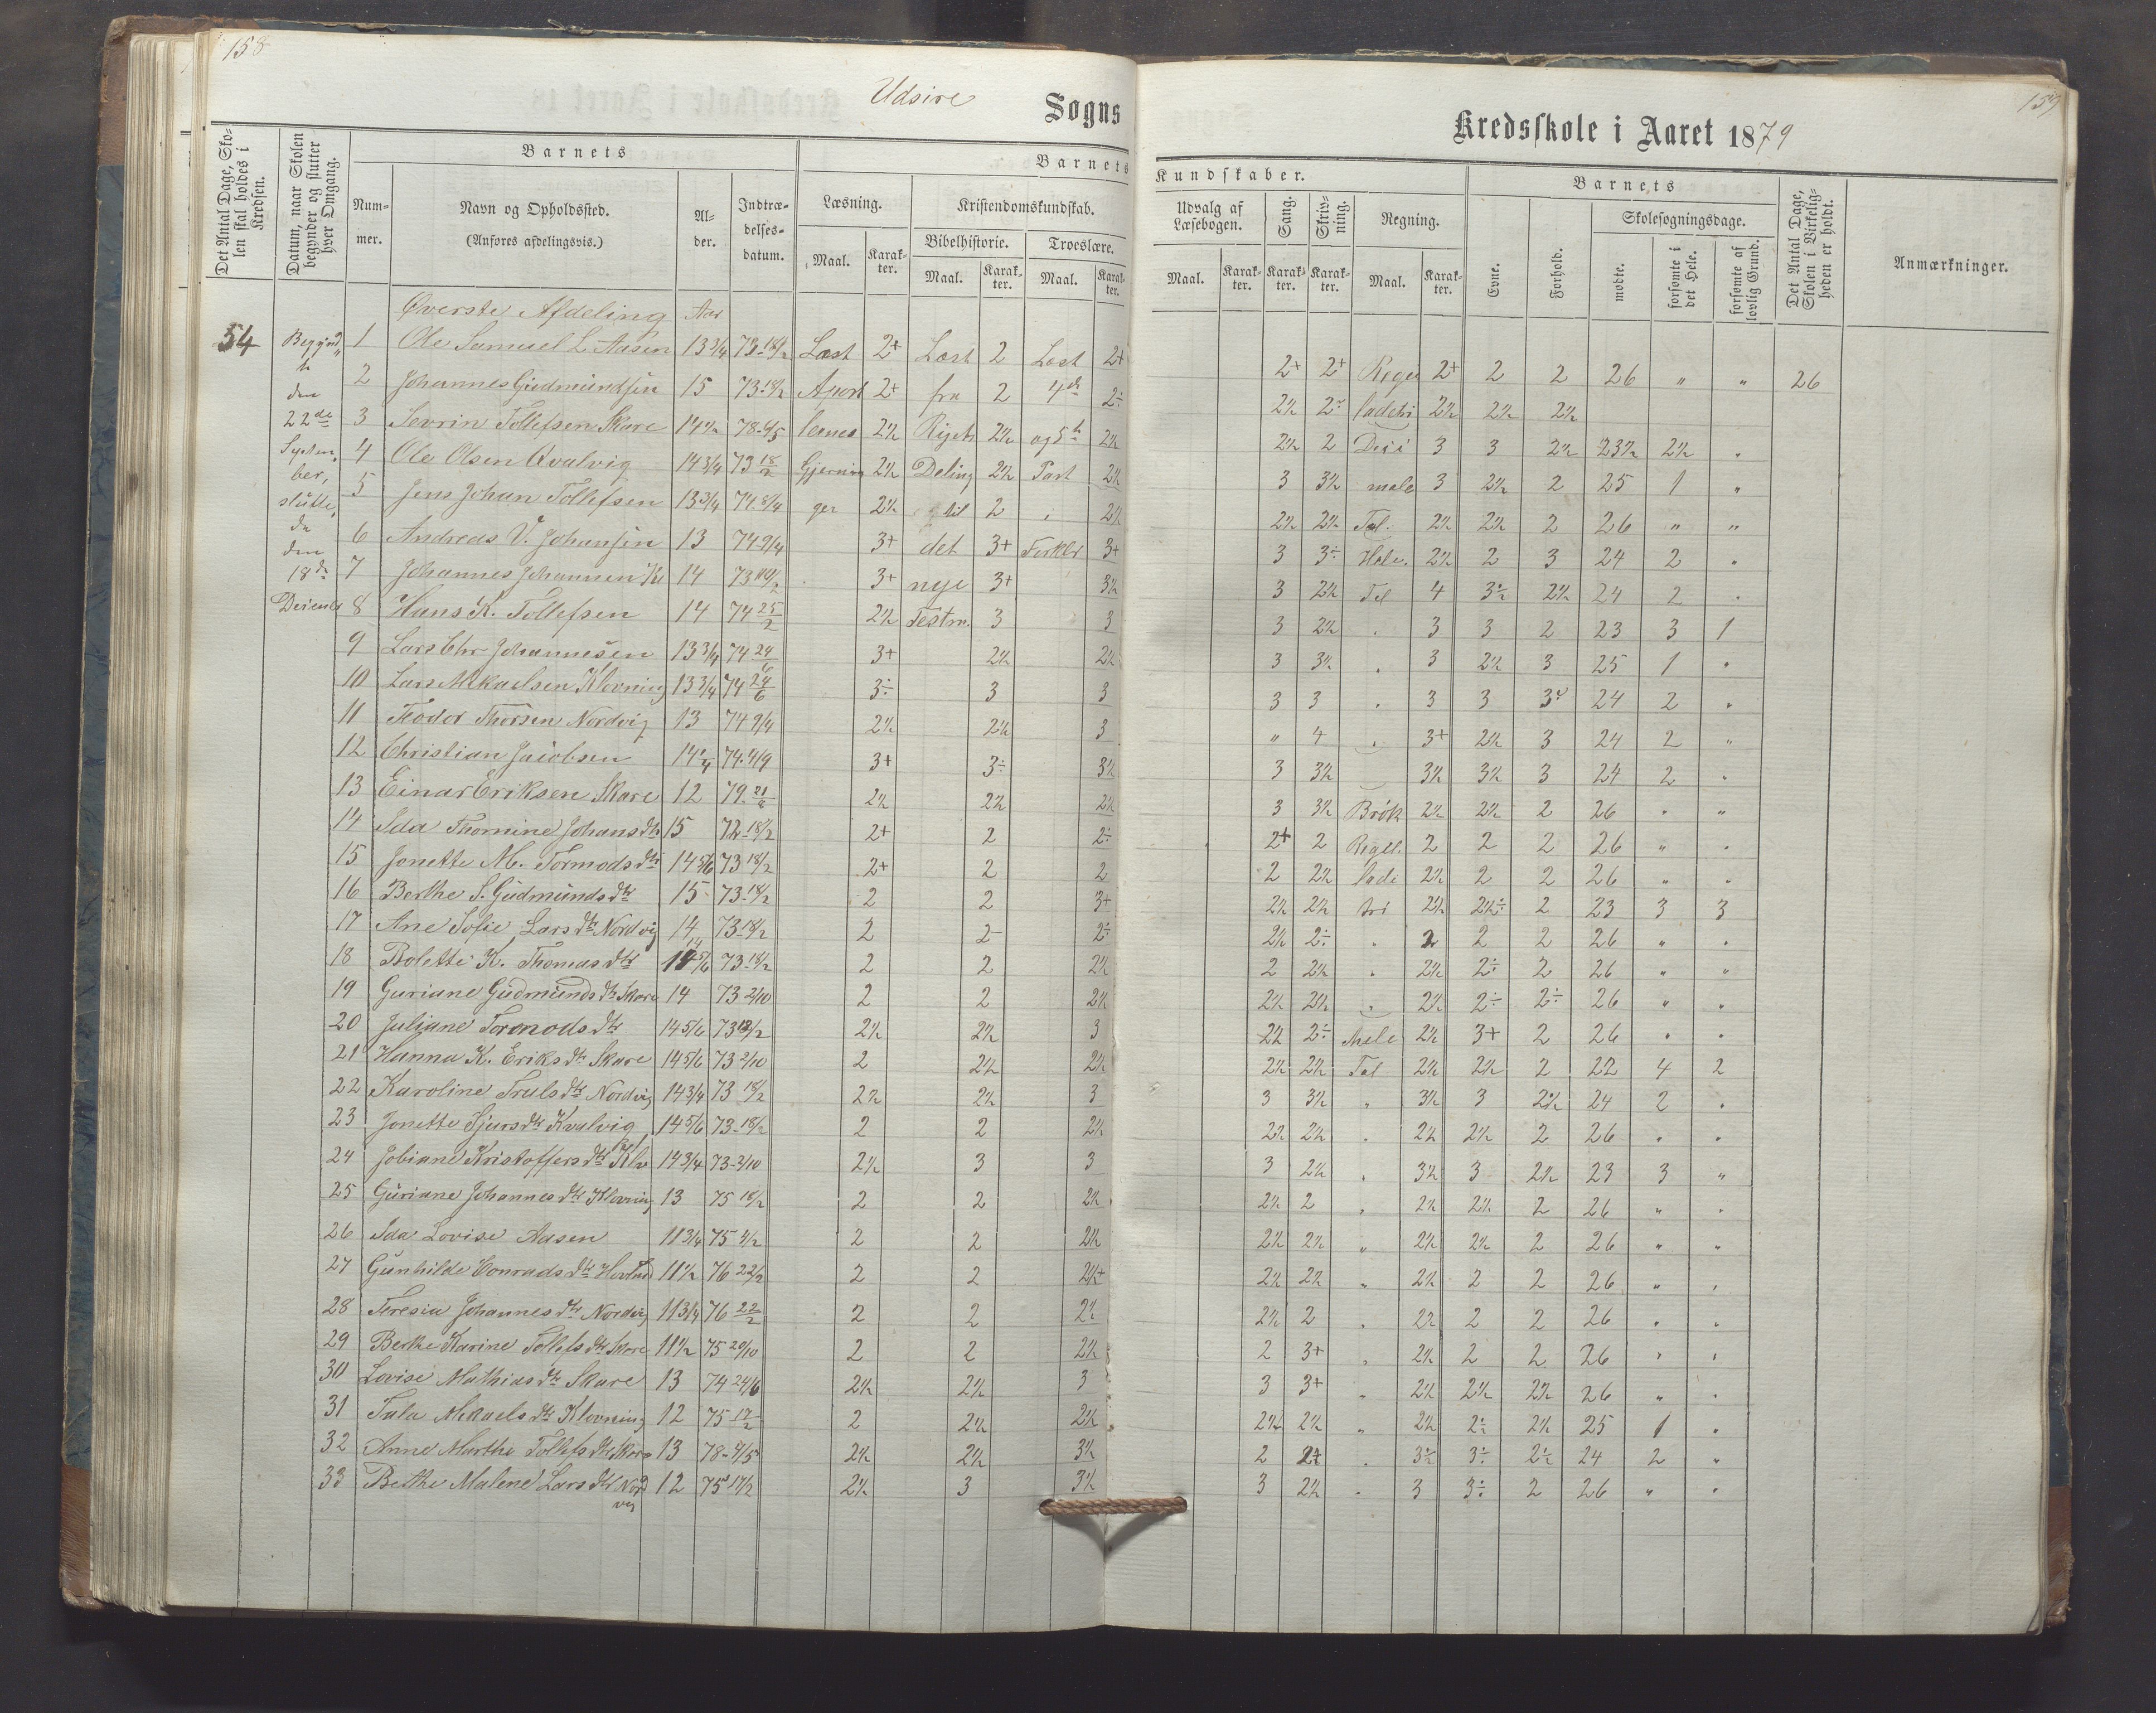 158
Udsire Sogns
Det Antal Dage, Skolen skal holdes i Kredsen.
Datum, naar Skolen begynder og slutter hver Omgang.
Barnets
Nummer.
Navn og Opholdssted.
(Anføres afdelingsvis.)
Alder.
Indtrædelsesdatum.
Barnets
Læsning.
Kristendomskundskab.
Bibelhistorie.
Troeslære.
Maal. Karakter. Maal. Karakter. Maal. Karakter.
Øverste Afdeling Aar
54
den
22de
Septem
ber,
den
18de
1 Ole Samuel L. Aasen 13 3/4 73 18/2 Læst 2+ Læst 2 Læst 2+
2 Johannes Gudmundsen 15 73 18/2 2+ fra 2 4de 2÷
3 Sevrin Tollefsen Skare 14 1/2 78 4/5 lernes 2½ Rigets 2½ og 5te 2½
4 Ole Olsen Qvalvig 14 3/4 73 18/2 Gjernin 2½ Deling 2½ Part 2½
5 Jens Johan Tollefsen 13 3/4 74 8/4 ger 2½ til 2 2½
6 Andreas V. Johansen 13 74 9/4 3+ det 3+ Forklr 3+
7 Johannes Johannesen Kl 14 73 3+ nye 3+ 3½
8 Hans K. Tollefsen 14 74 25/2 2½ Testm. 3 3
9 Lars Chr Johannesen 13 3/4 74 24/6 3+ 2½ 2½
10 Lars Mikaelsen Klovning 13 3/4 74 24/6 3÷ 3 3
11 Teodor Thorsen Nordvig 13 74 9/4 2½ 2½ 3
12 Christian Jacobsen 14 1/4 74 4/9 3+ 3÷ 3½
13 Einar Eriksen Skare 12 79 2½ 2½ 2½
14 Ida Thomine Johans dtr 15 72 18/2 2+ 2 2÷
15 Jonette M. Tormods dtr 14 5/6 73 18/2 2+ 2 2
16 Berthe S. Gudmunds dtr 15 73 18/2 2 2 3+
17 Ane Sofie Lars dtr Nordvig 14 73 18/2 2 2 2÷
18 Bolette K. Thomas dtr 14 5/6 73 18/2 2 2 2½
19 Guriane Gudmunds dtr Skare 14 73 2/10 2 2 2½
20 Juliane Tormods dtr 14 5/6 73 18/2 2½ 2½ 3
21 Hanna K. Eriks dtr Skare 14 5/6 73 2/10 2 2½ 2½
22 Karoline Truls dtr Nordvig 14 3/4 73 18/2 2½ 2½ 3
23 Jonette Sjurs dtr Kvalvig 14 5/6 73 18/2 2 2 2½
24 Jobiane Kristoffers dtr Klv 14 3/4 73 2/10 2½ 3 3
25 Guriane Johannes dtr Klovning 13 75 18/2 2 2 2½
26 Ida Lovise Aasen 11 3/4 75 4/2 2 2 2½
27 Gunhilde Conrads dtr 11 1/2 76 22/2 2 2 2½+
28 Teresia Johannes dtr Nordvig 11 3/4 76 22/2 2 2 2½
29 Berthe Karine Tollefs dtr Skare 11 1/2 75 20/10 2 2 2½
30 Lovise Mathias dtr Skare 13 74 24/6 2½ 2½ 3
31 Tala Mikaels dtr Klovning 12 75 17/2 2 2½ 2½
32 Anne Marthe Tollefs dtr Skare 13 78 4/5 2½ 2½ 3½
33 Bethe Malene Lars dtr Nordvig 12 75 17/2 2½ 3 3½
159
Kredsskole i Aaret 1879
Kundskaber.
Udvalg af Læsebogen.
Sang.
Skrivning.
Regning.
Maal. Karakter. Karakter. Karakter. Maal. Karakter.
Barnets
Evne.
Forhold.
Skolesøgningsdage.
mødte.
forsømte i det Hele.
forsømte af lovlig Grund.
Det Antal Dage, Skolen i Virkeligheden er holdt.
Anmærkninger.
2+ 2+ 2+ 2 2 26 " " 26
2½ 2 ladetri 2½ 2½ 2½
2½ 2 Deci 3 3 2½ 23½ 2½ "
3 3½ male 3 2½ 2 25 1 "
2½ 2½ Tal. 2½ 2½ 2 26 " "
3 3÷ Hele. 2½ 2 3 24 2 "
3 2½ Tal 4 3½ 2½ 24 2 "
3 2½ " 3 3 2 23 3 1
3 3½ " 3 2½ 3 25 1 "
3 3 " 3 3 3 24 2 "
" 4 " 3+ 2½ 3 24 2 "
3 3½ 3½ 3½ 3 24 2 "
3 3½ Brøk 2½ 2½ 2 26 " "
2+ 2 2 2 2 26 " "
2 2½ lade 2½ 2 2 26 " "
2½ 2½ tri 2½ 2½÷ 2 23 3 3
2½ 2÷ " 2 2 2 26 " "
2 2½ " 2½ 2÷ 2 26 " "
2½ 2½ " 2½ 2÷ 2÷ 26 " "
2½ 2÷ Hele 2½ 3+ 2 26 " "
2½ 2½ Tal 2½ 2½ 2 22 4 2
3 3½ " 3½ 3 2½ 24 2 "
2½ 2½ " 2½ 2½ 2 26 " "
3 2½ " 3½ 3 2½ 23 3 "
2½ 2 " 2½ 2½ 2 26 " "
2½ 2½ " 2½ 2½ 2 26 " "
2½ 2½ " 2½ 2 2 26 " "
2½ 2 " 2½ 2 2 26 " "
2 3+ " 2½ 2 2 26 " "
3 3+ " 2½ 2½ 2½ 26 " "
2½ 2½ " 2½ 2÷ 2½ 25 1 "
2 2+ " 3½ 3÷ 2½ 24 2 "
3 2½ " 3 3÷ 2 26 " "